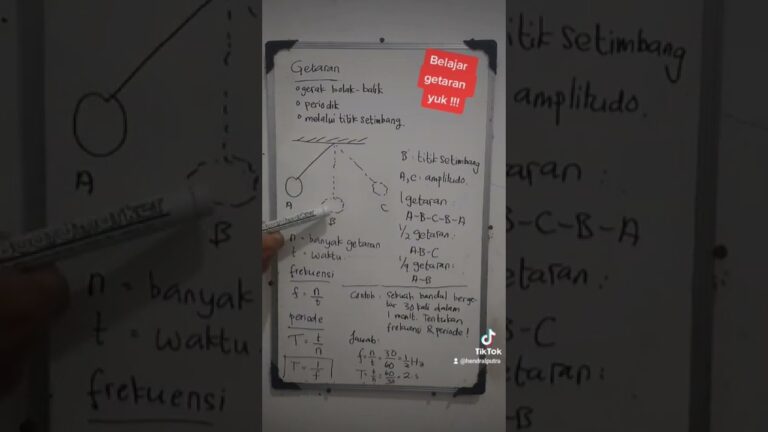 Getaran
gerak bolak-balik
periodik
melalui titik setimbang
Belajar
getaran
yuk !!!
A
B
C
B : titik setimbang
A, C : amplitudo.
1 getaran :
A-B-C-B-A
1/2 getaran :
A-B-C
1/4 getaran :
A-B
n = banyak getaran
t = waktu
frekuensi
f = n/t
periode
T = t/n
T = 1/f
Contoh : Sebuah bandul berge-
tar 30 kali dalam
1 menit. Tentukan
frekuensi & periode !
Jawab :
f = n/t = 30/60 = 1/2 Hz
T = t/n = 60/30 = 2 s
TikTok
@hendralputra
A
B
n = banyak
t = waktu
frekuensi
titik setimbang
amplitudo.
getaran :
B-C-B-A
getaran :
B-C
etaran :
B